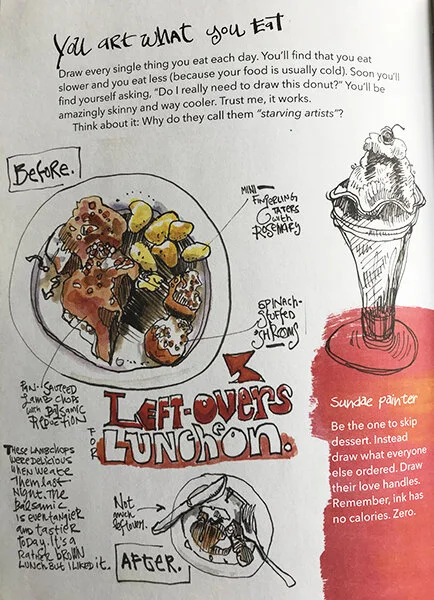 You art what you Eat
Draw every single thing you eat each day. You'll find that you eat
slower and you eat less (because your food is usually cold). Soon you'll
find yourself asking, "Do I really need to draw this donut?" You'll be
amazingly skinny and way cooler. Trust me, it works.
Think about it: Why do they call them "starving artists"?
Before.
Mini
Fingerling
Taters
with
Rosemary
Spinach-
Stuffed
'Shrooms
Pan-Sauteed
Lamb chops
with Balsamic
Reduction
Left-overs
For
Luncheon.
These lambchops
were delicious
when we ate
them last
night. The
Balsamic
is even tangier
and tastier
today. It's a
rather brown
lunch but I liked it.
Not
much
leftover.
After.
Sundae painter
Be the one to skip
dessert. Instead
draw what everyone
else ordered. Draw
their love handles.
Remember, ink has
no calories. Zero.